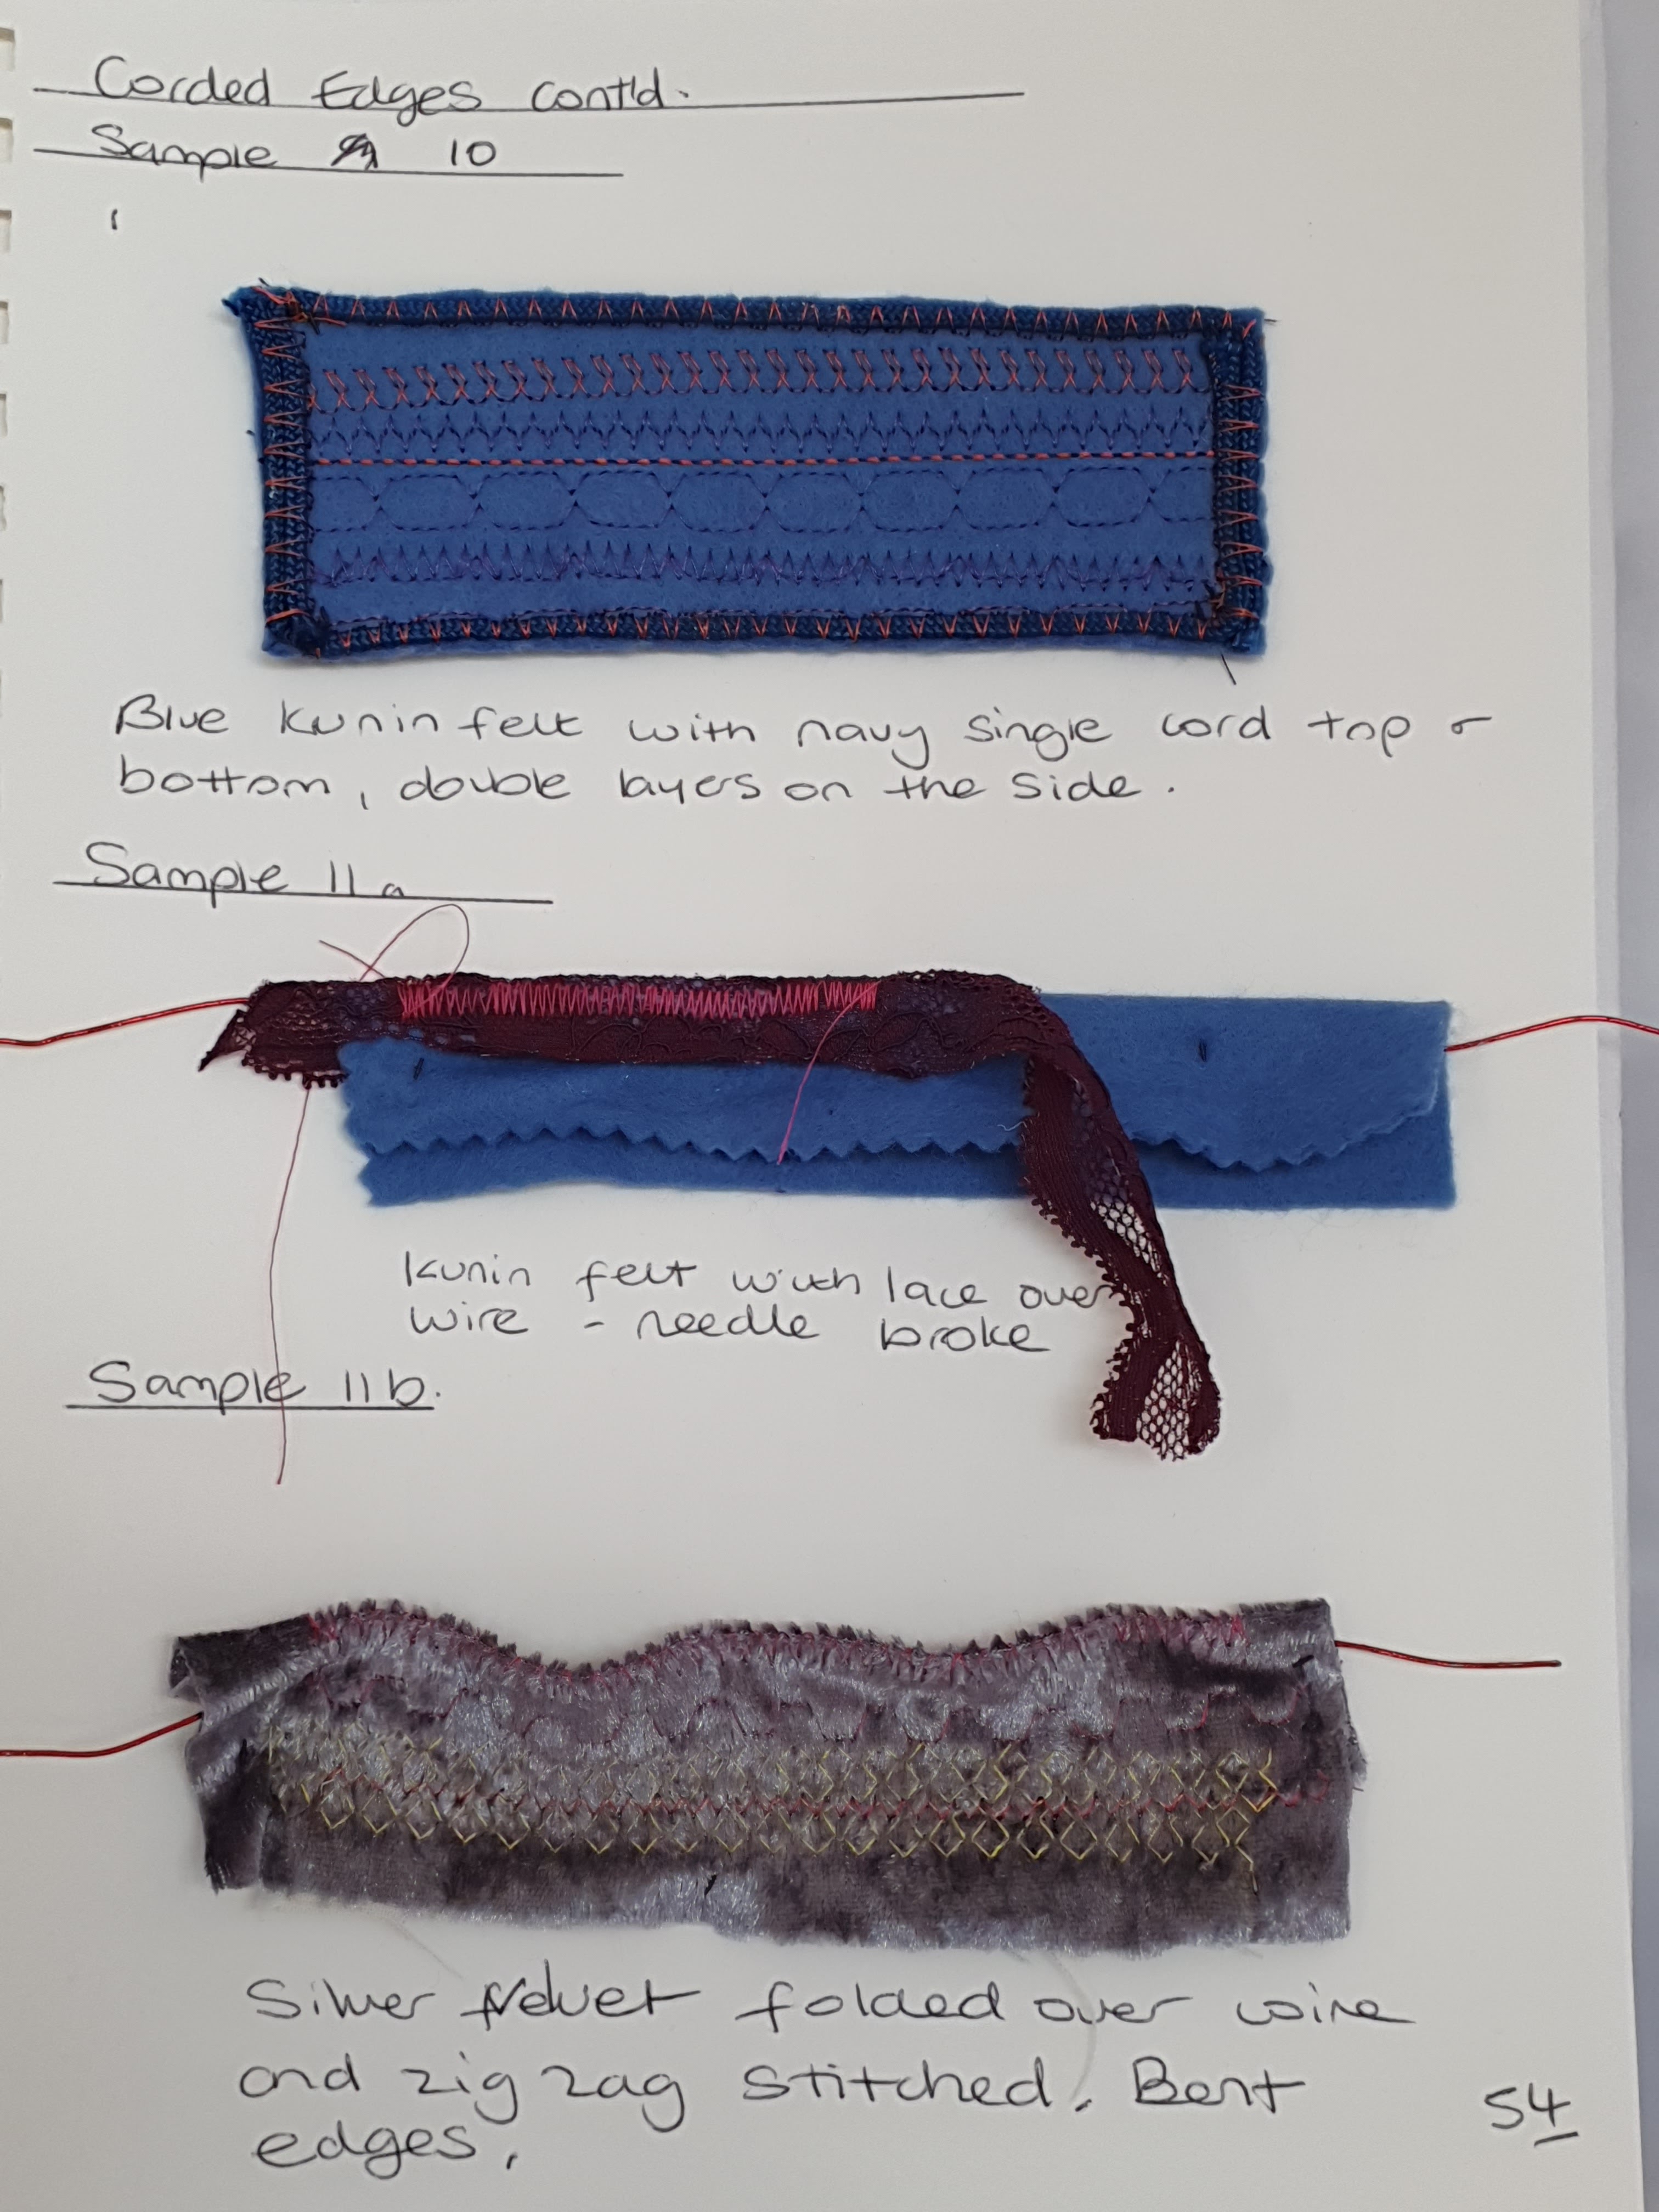 Corded Edges cont'd.
Sample 10
Blue Kunin felt with navy single cord top &
bottom, double layers on the side.
Sample 11a
Kunin felt with lace over
wire - needle broke
Sample 11b.
Silver Velvet folded over wire
and zig zag stitched. Bent
edges.
54